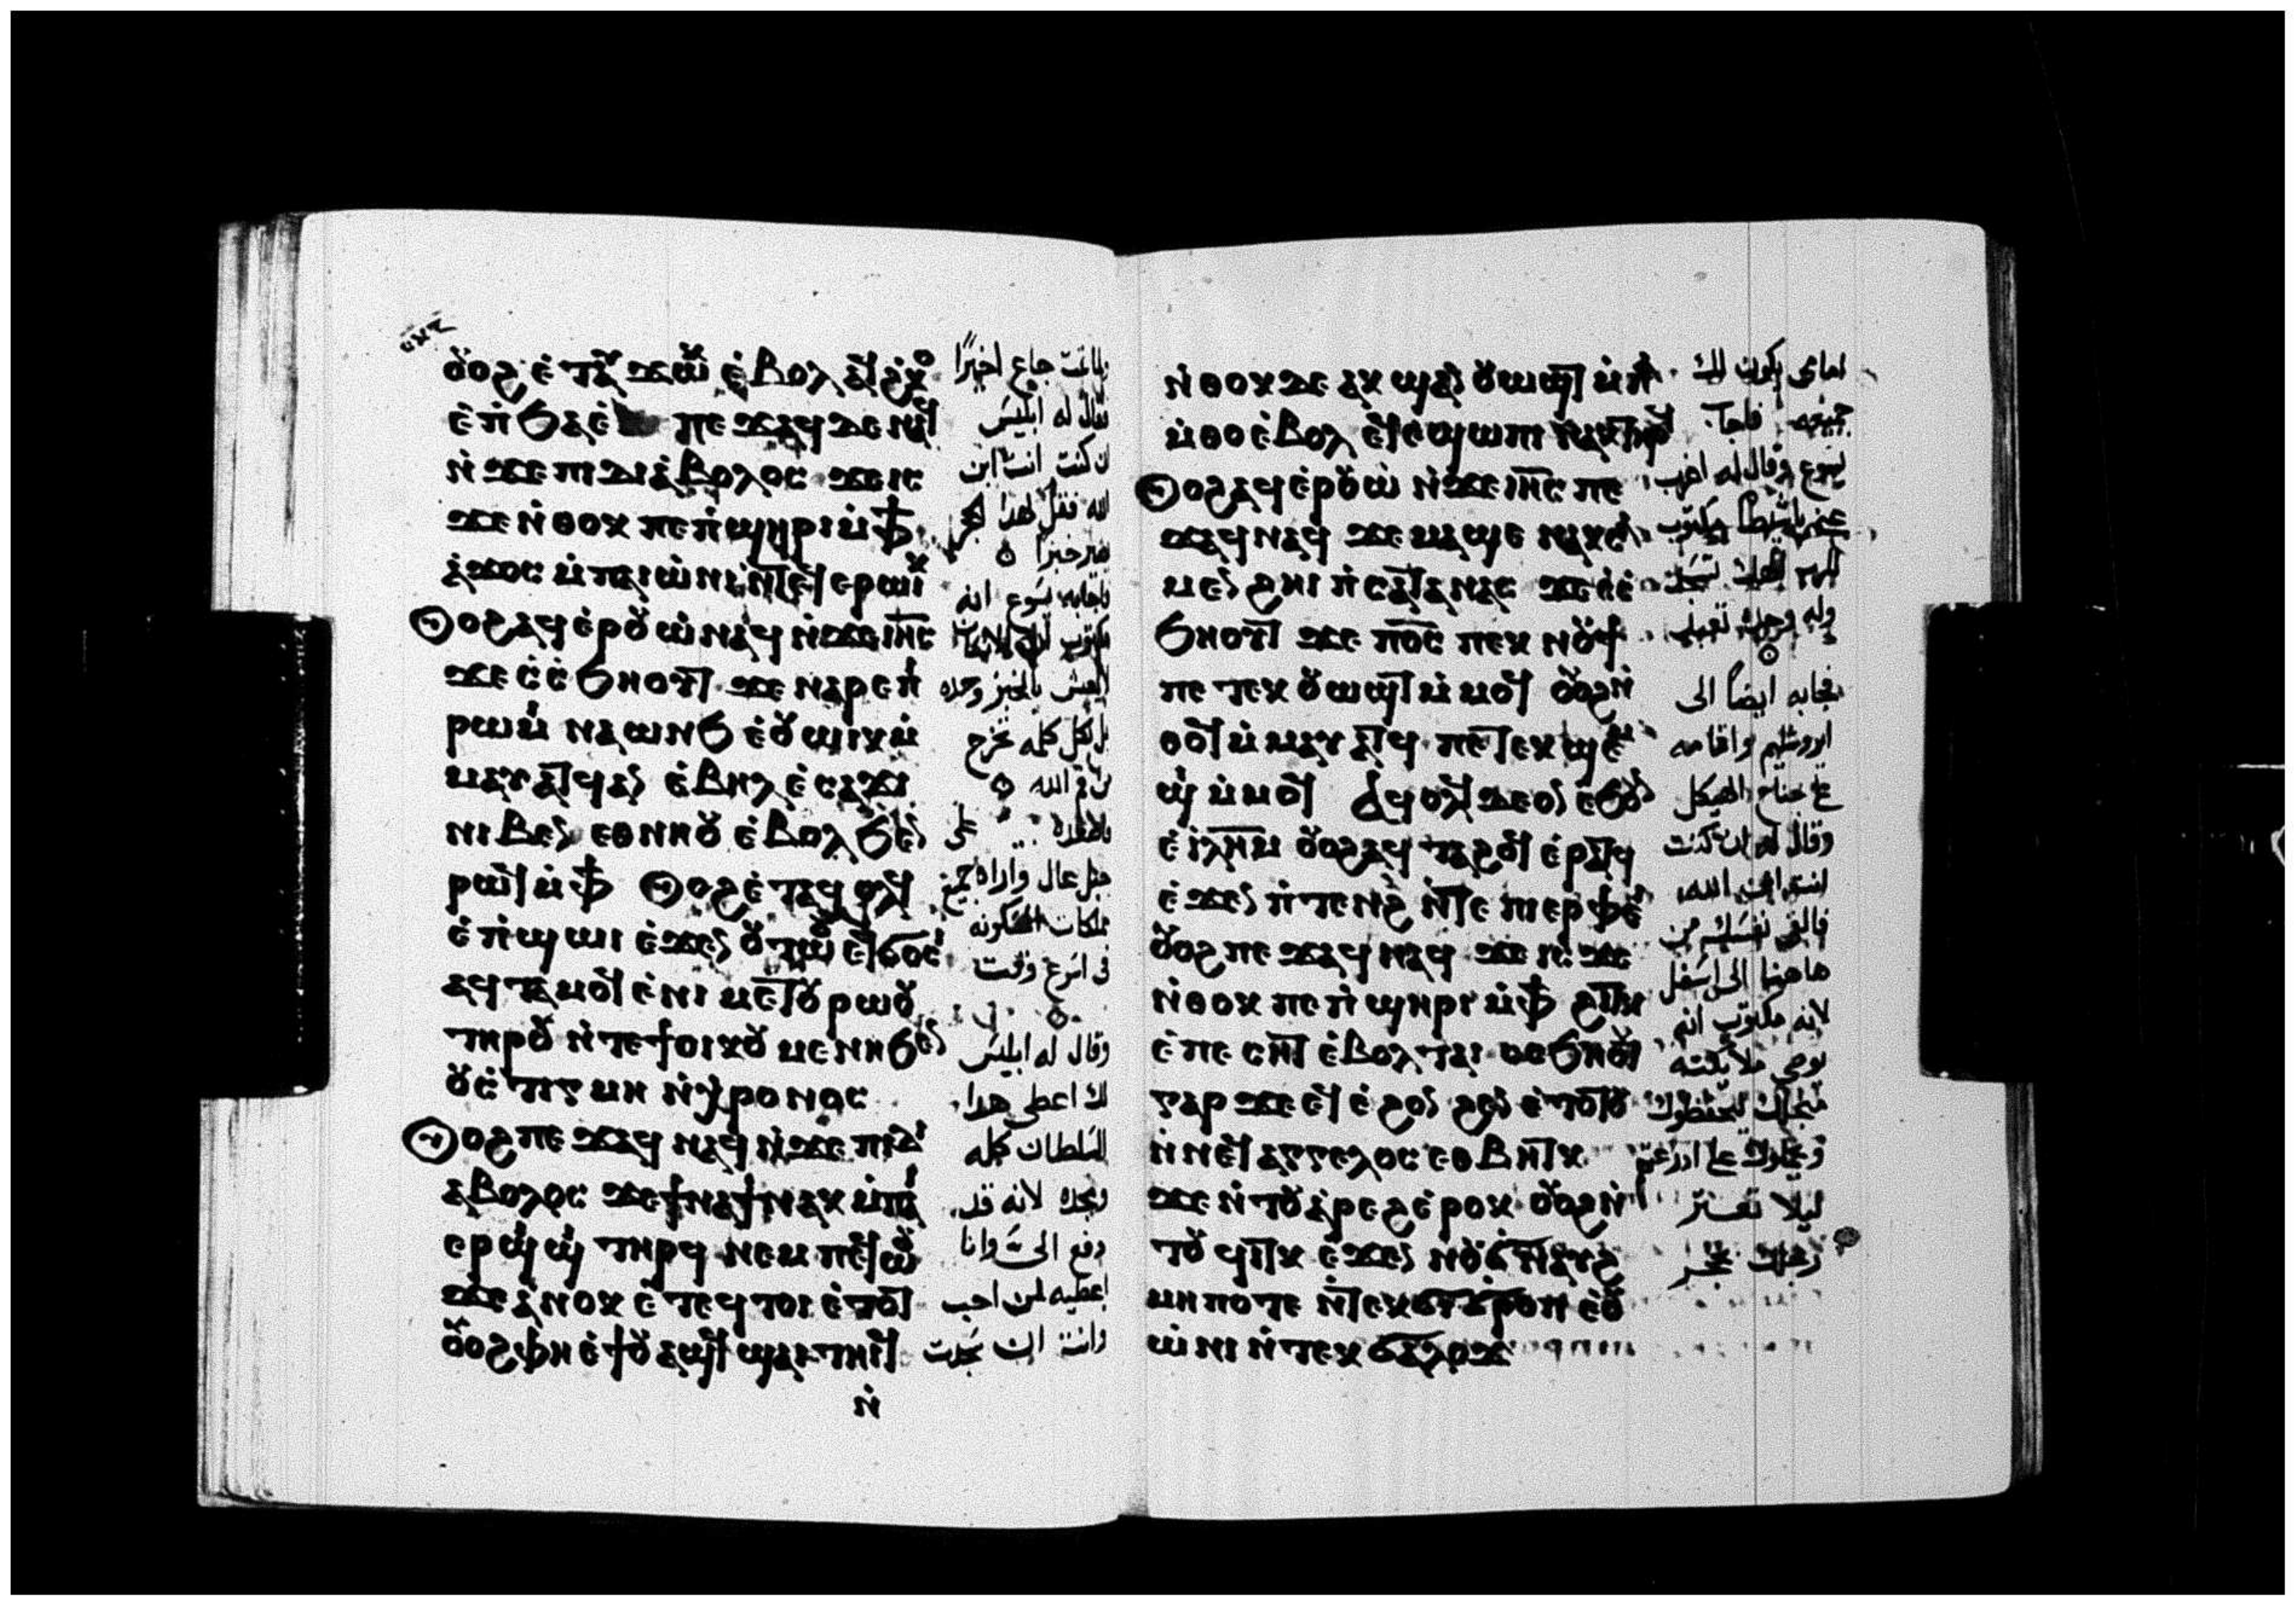 ⲟⲩⲟϩ ⲉⲧⲁⲩϫⲱⲕ ⲉⲃⲟⲗ ⲁϥϩⲕⲟ
ⲉⲡϧⲁⲉ ⲡⲉϫⲁϥ ⲇⲉ ⲛⲁϥ
ⲛ̇ϫⲉ ⲡⲓⲇⲓⲁⲃⲟⲗⲟⲥ ϫⲉ ⲓⲥ
ϫⲉ ⲛ̇ⲑⲟⲕ ⲡⲉ ⲡ̇ϣⲏⲣⲓ ⲙ̇ⲫϯ
ⲁϫⲟⲥ ⲙ̇ⲡⲁⲓⲱⲛⲓ ⲛ̇ⲧⲉϥⲉⲣⲱⲓⲕ
ⲟⲩⲟϩ ⲁϥⲉⲣⲟⲩⲱ̇ ⲛⲁϥ ⲛ̇ϫⲉ ⲓⲏ̅ⲥ̅
ϫⲉ ⲥ̇ⲥ̇ϧⲏⲟⲩⲧ ϫⲉ ⲛⲁⲣⲉ ⲡⲓ
ⲣⲱⲙⲓ ⲛⲁⲱⲛϧ ⲉ̇ⲟⲩⲱⲓⲕ ⲙ̇
ⲙⲁⲩⲁⲧϥ ⲁⲛ ⲉ̇ⲃⲏⲗ ⲉ̇ⲥⲁϫⲓ
ⲛⲓⲃⲉⲛ ⲉⲑⲛⲏⲟⲩ ⲉ̇ⲃⲟⲗ ϧⲉⲛ
ⲣⲱϥ ⲙ̇ⲫϯ ⲟⲩⲟϩ ⲉ̇ⲧⲁϥⲟⲗϥ
ⲉ̇ⲡ̇ϣⲱⲓ ⲉ̇ϫⲉⲛ ⲟⲩⲧⲱⲟⲩ ⲉϥϭⲟⲥⲓ
ⲁϥⲧⲁⲙⲟϥ ⲉ̇ⲛⲓ ⲙⲉⲧⲟⲩⲣⲱⲟⲩ
ⲧⲏⲣⲟⲩ ⲛ̇ⲧⲉ ϯⲟⲓⲕⲟⲩⲙⲉⲛⲏ ϧⲉⲛ
ⲟⲩⲥ̇ⲧⲓⲅⲙⲏ ⲛ̇ⲭⲣⲟⲛⲟⲥ
ⲟⲩⲟϩ ⲡⲉϫⲁϥ ⲛⲁϥ ⲛ̇ϫⲉ ⲡⲓⲇⲓ
ⲁⲃⲟⲗⲟⲥ ϫⲉ ϯⲛⲁϯ ⲛⲁⲕ ⲙ̇ⲡⲁⲓ
ⲉⲣϣⲓϣⲓ ⲧⲏⲣϥ ⲛⲉⲙ ⲡⲉϥⲱⲟⲩ
ϫⲉ ⲁ̇ⲛⲟⲕ ⲉ̇ⲧⲉϥⲧⲟⲓ ⲉ̇ⲧⲟⲧ
ⲟⲩⲟϩ ⲫⲏ ⲉ̇ϯⲟⲩⲁϣϥ ϣⲁⲓⲧⲏⲓϥ
ⲛ̇
جاع اخيرًا
فقال له ابليس
ان كنت انت ابن
الله فقل لهدا الحجر
يصير خبزا
فاجابه يسوع انه
مكتوب
لا يعيش بالخبز وحده
بل بكل كلمه تخرج
من فم الله
على
جبل عال واراه جميع
مملكات المسكونه
فى اسرع وقت
وقال له ابليس
لك اعطى هدا
السلطان كله
ومجده لانه قد
دفع الىّ وانا
اعطيه لمن احب
وانت ان سجدت
ⲛ̇ⲑⲟⲕ ⲇⲉ ⲁⲕϣⲁⲛⲟⲩⲱϣⲧ ⲙ̇ⲡⲁ
ⲙ̇ⲑⲟ ⲉ̇ⲃⲟⲗ ⲉϥⲉ̇ϣⲱⲡⲓ ⲛⲁⲕ ⲧⲏⲣϥ
ⲟⲩⲟϩ ⲁϥⲉ̇ⲣⲟⲩⲱ̇ ⲛ̇ϫⲉ ⲓⲏ̅ⲥ̅ ⲡⲉ
ϫⲁϥ ⲛⲁϥ ϫⲉ ⲙⲁϣⲉ ⲛⲁⲕ ⲥⲁ
ⲙⲉⲛϩⲏⲓ ⲡ̇ⲥⲁⲧⲁⲛⲁⲥ ϫⲉ ⲥ̇ⲥ̇
ϧⲏⲟⲩⲧ ϫⲉ ⲡⲟ̅ⲥ̅ ⲡⲉⲕⲛⲟⲩϯ
ⲡⲉⲧⲉⲕⲟⲩⲱϣⲧ ⲙ̇ⲙⲟϥ ⲟⲩⲟϩ ⲛ̇
ⲑⲟϥ ⲙ̇ⲙⲁⲩⲁⲧϥ ⲡⲉⲧⲉⲕϣⲉⲙ
ϣⲓ ⲙ̇ⲙⲟϥ ⲁϥⲟⲗϥ ⲇⲉ ⲟⲛ ⲉϧⲟⲩⲛ
ⲉ̇ⲓⲗⲏⲙ ⲟⲩⲟϩ ⲁϥⲧⲁϩⲟϥ ⲉ̇ⲣⲁⲧϥ
ⲉ̇ϫⲉⲛ ⲡ̇ⲧⲉⲛϩ ⲛ̇ⲧⲉ ⲡⲓⲉⲣⲫⲉⲓ
ⲟⲩⲟϩ ⲡⲉϫⲁϥ ⲛⲁϥ ϫⲉ ⲓⲥ ϫⲉ
ⲛ̇ⲑⲟⲕ ⲡⲉ ⲡ̇ϣⲏⲣⲓ ⲙ̇ⲫϯ ϩⲓⲧⲕ
ⲉ̇ⲡⲉⲥⲏⲧ ⲉ̇ⲃⲟⲗ ⲧⲁⲓ ⲥⲥϧⲏⲟⲩⲧ
ⲅⲁⲣ ϫⲉ ⲉϥⲉ̇ϩⲟⲛϩⲉⲛ ⲉ̇ⲧⲟⲧⲟⲩ
ⲛ̇ⲛⲉϥⲁⲅⲅⲉⲗⲟⲥ ⲉⲑⲃⲏⲧⲕ
ϫⲉ ⲛ̇ⲧⲟⲩⲁ̇ⲣⲉϩ ⲉ̇ⲣⲟⲕ ⲟⲩⲟϩ ⲛ̇
ⲧⲟⲩϥⲓⲧⲕ ⲉ̇ϫⲉⲛ ⲛⲟⲩϭⲛⲁⲩϩ
ⲙⲏⲡⲟⲧⲉ ⲛ̇ⲧⲉⲕϭⲓϭⲣⲟⲡ ⲉ̇ⲟⲩ
ⲱ̇ⲛⲓ ⲛ̇ⲧⲉⲕϭⲁⲗⲟϫ
امامى يكون لك
جميعه فاجاب
يسوع وقال له اغرب
مكتوب
وله وحده تعبد
فجابه ايضاً الى
ايروشليم واقامه
على جناح الهيكل
وقال له ان كنت
انت ابن الله
فالقى نفسك من
هاهنا الى اسفل
لانه مكتوب انه
يوصى ملايكته
من اجلك ليحفظوك
ليلا تعتر
رجلك بحجر